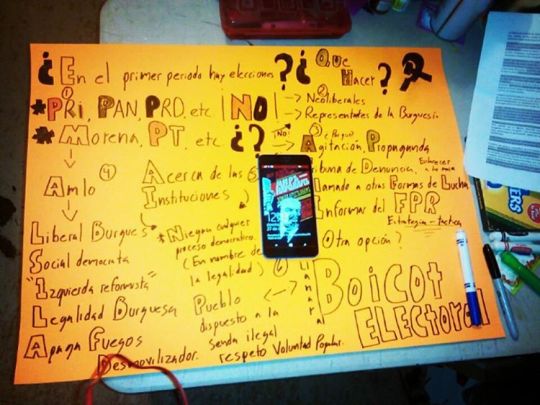 ¿En el primer periodo hay elecciones? ¿Que Hacer?
*PRi, PAN, PRD, etc |NO| → Neoliberales
→ Representates de la Burguesía
*Morena, PT, etc ¿? → ¡NO!
Agitación, Propaganda
④
Amlo
Acerca de las Instituciones
Denuncia,
Llamado a otras Formas de Lucha
Informar del FPR
Estrategia - tactica
Otra opción?
Liberal Burgues
Social democrata
"Izquierda reformista"
Legalidad Burguesa
Apaga Fuegos
Desmovilizador.
*Niegan cualquier
proceso democratico.
(En nombre de
la legalidad)
Pueblo
dispuesto a la
senda ilegal
respeto Voluntad Popular.
<-->
Boicot
ELECTORAL